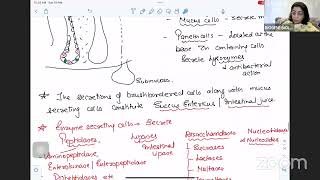 Mucus cells → secrete m
Paneth cells → located at the
base Zn containing cells
Secrete Lysozymes
↓ antibacterial
action
Submucosa
* The secretions of brushbordered cells along with mucus
secreting cells constitute Succus Entericus / Intestinal juice.
* Enzyme secreting cells → Secrete
Peptidases Lipases Disaccharidases Nucleotidases
& Nucleosidases
Aminopeptidase Intestinal lipase → Sucrases
Enterokinase / Enteropeptidase → Lactases
Dipeptidases etc → Maltases
zoom